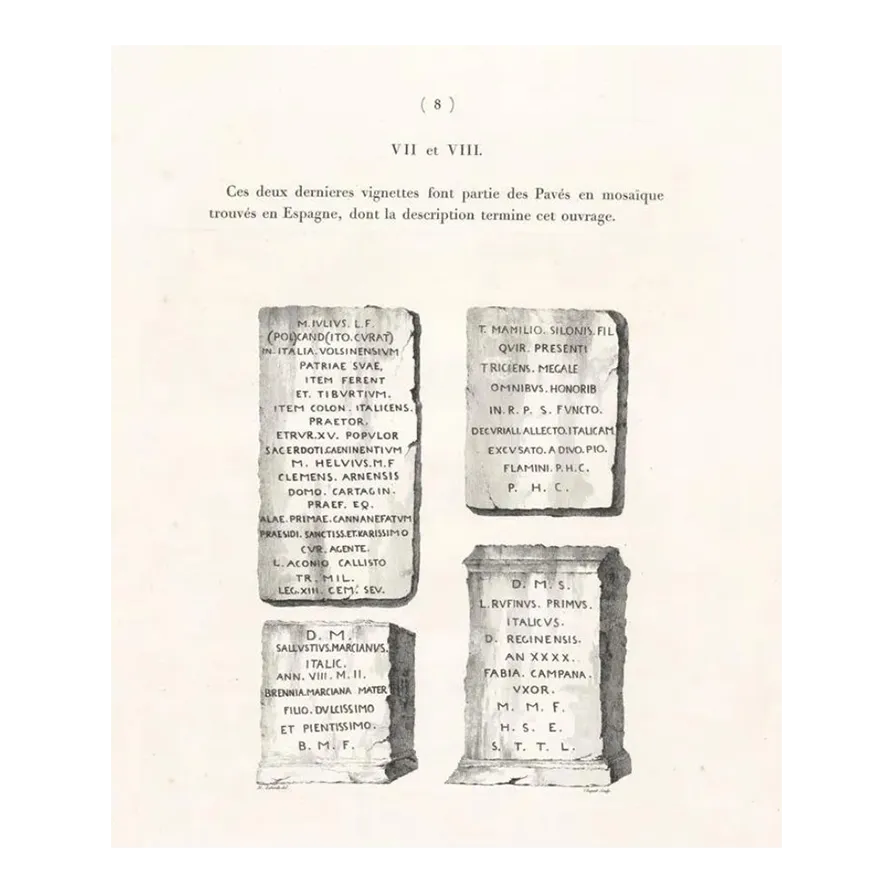 ( 8 )
VII et VIII.
Ces deux dernieres vignettes font partie des Pavés en mosaïque
trouvés en Espagne, dont la description termine cet ouvrage.
M. IVLIVS. L. F.
(POL)CAND(ITO. CVRAT)
IN. ITALIA. VOLSINENSIVM
PATRIAE SVAE,
ITEM FERENT
ET. TIBVRTIVM.
ITEM COLON. ITALICENS.
PRAETOR.
ETRVR. XV. POPVLOR
SACERDOTI. CAENINENTIVM
M. HELVIVS. M. F
CLEMENS. ARNENSIS
DOMO. CARTAGIN.
PRAEF. EQ.
ALAE. PRIMAE. CANNANEFATVM
PRAESIDI. SANCTISS. ET. KARISSIMO
CVR. AGENTE.
L. ACONIO CALLISTO
TR. MIL.
LEG. XIII. CEM. SEV.
T. MAMILIO. SILONIS. FIL
QVIR. PRESENTI
TRICIENS. MEGALE
OMNIBVS. HONORIB
IN. R. P. S. FVNCTO.
DECVRIALI. ALLECTO. ITALICAM
EXCVSATO. A DIVO. PIO.
FLAMINI. P. H. C.
P. H. C.
D. M.
SALLVSTIVS. MARCIANVS.
ITALIC.
ANN. VIII. M. II.
BRENNIA. MARCIANA MATER
FILIO. DVLCISSIMO
ET PIENTISSIMO.
B. M. F.
D. M. S.
L. RVFINVS. PRIMVS.
ITALICVS.
D. REGINENSIS.
AN XXXX.
FABIA. CAMPANA.
VXOR.
M. M. F.
H. S. E.
S. T. T. L.